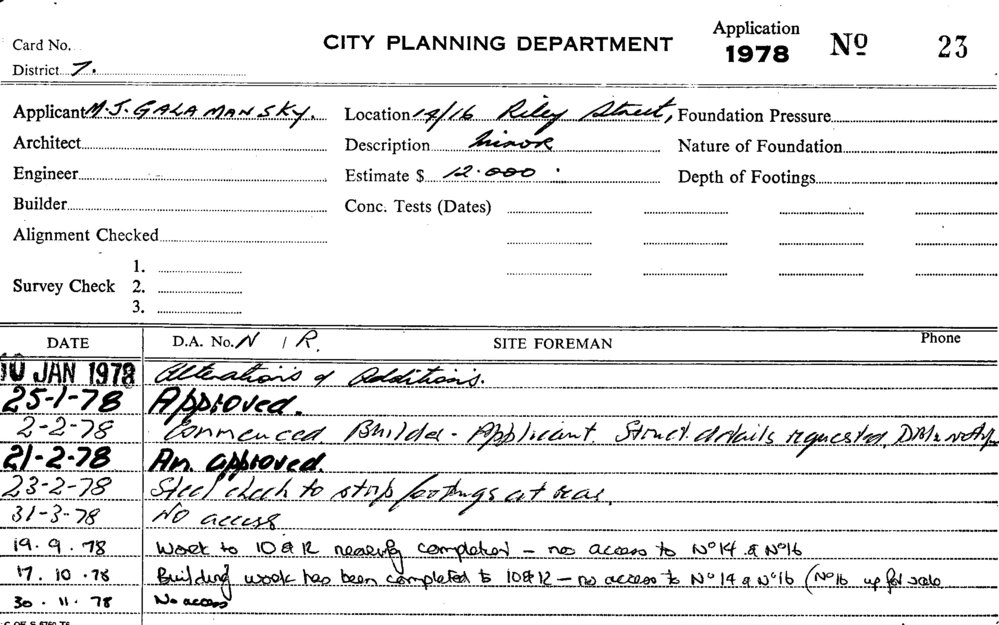 Card No.
CITY PLANNING DEPARTMENT
Application
1978 No 23
District 7.
Applicant M.J. GALAMANSKY. Location 14/16 Riley Street, Foundation Pressure
Architect Description Minor Nature of Foundation
Engineer Estimate $ 12.000 Depth of Footings
Builder Conc. Tests (Dates)
Alignment Checked
1.
Survey Check 2.
3.
DATE D.A. No. N / R. SITE FOREMAN Phone
10 JAN 1978 Alterations & Additions.
25-1-78 Approved.
2-2-78 Commenced Builder - Applicant. Struct. details requested,
21-2-78 Am. approved.
23-2-78 Steel check to strip footings at rear.
31-3-78 No access
19.9.78 Work to 10 & 12 nearing completed - no access to No 14 & No 16
17.10.78 Building work has been completed to 10 & 12 - no access to No 14 & No 16 (No 16 up for sale
30.11.78 No access